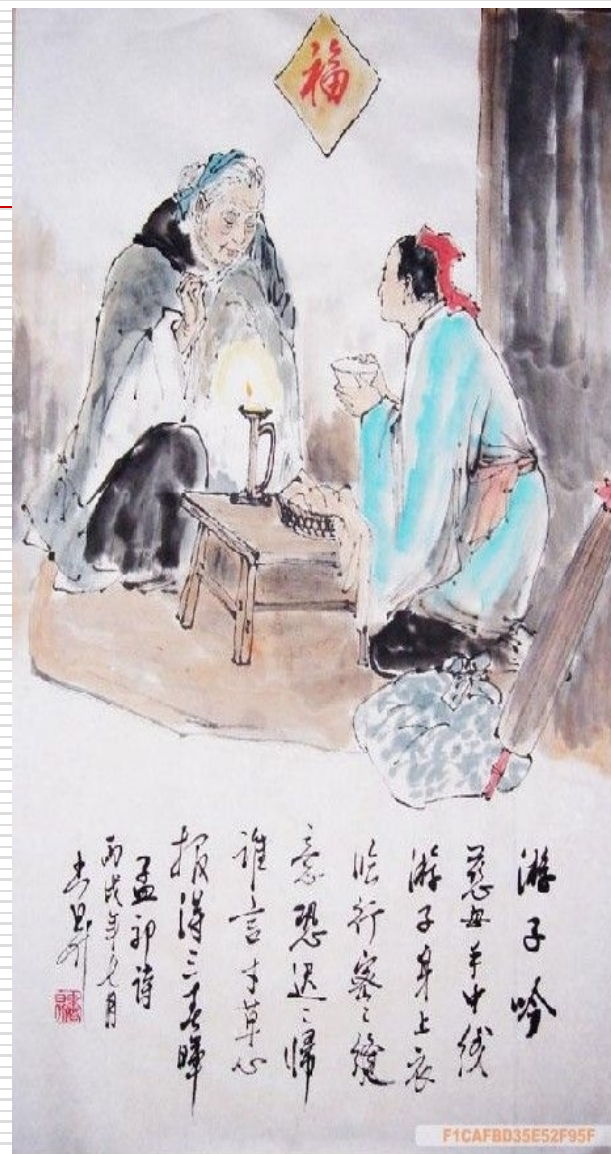 福
游子吟
慈母手中线
游子身上衣
临行密〻缝
意恐迟〻歸
谁言寸草心
报得三春晖
孟郊诗
丙戌年七月
F1CAFBD35E52F95F